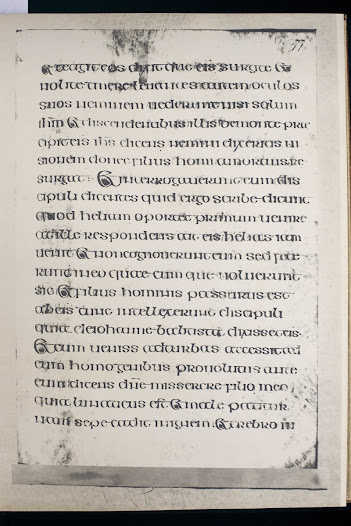 77
& tetigit eos dixitque eis surgite &
nolite timere leuantes autem oculos
suos neminem uiderunt nisi solum
ihm & discendentibus illis de monte prae
cipit eis ihs dicens nemini dixeritis ui
sionem donec filius hominis a mortuis re
surgat & interrogauerunt eum dis
cipuli dicentes quid ergo scribe dicunt
quod heliam oportet primum uenire
at ille respondens ait eis helias iam
uenit & non cognouerunt eum sed fece
runt in eo quaecumque uoluerunt
sic & filius hominis passurus est
ab eis tunc intellexerunt discipuli
quia de iohanne babtista dixisset eis
& cum ueniss ad turbas accessit ad
eum homo genibus prouolutis ante
eum dicens dne misserere filio meo
quia lunaticus est & male patitur
nam sepe cadit in ignem & crebro in